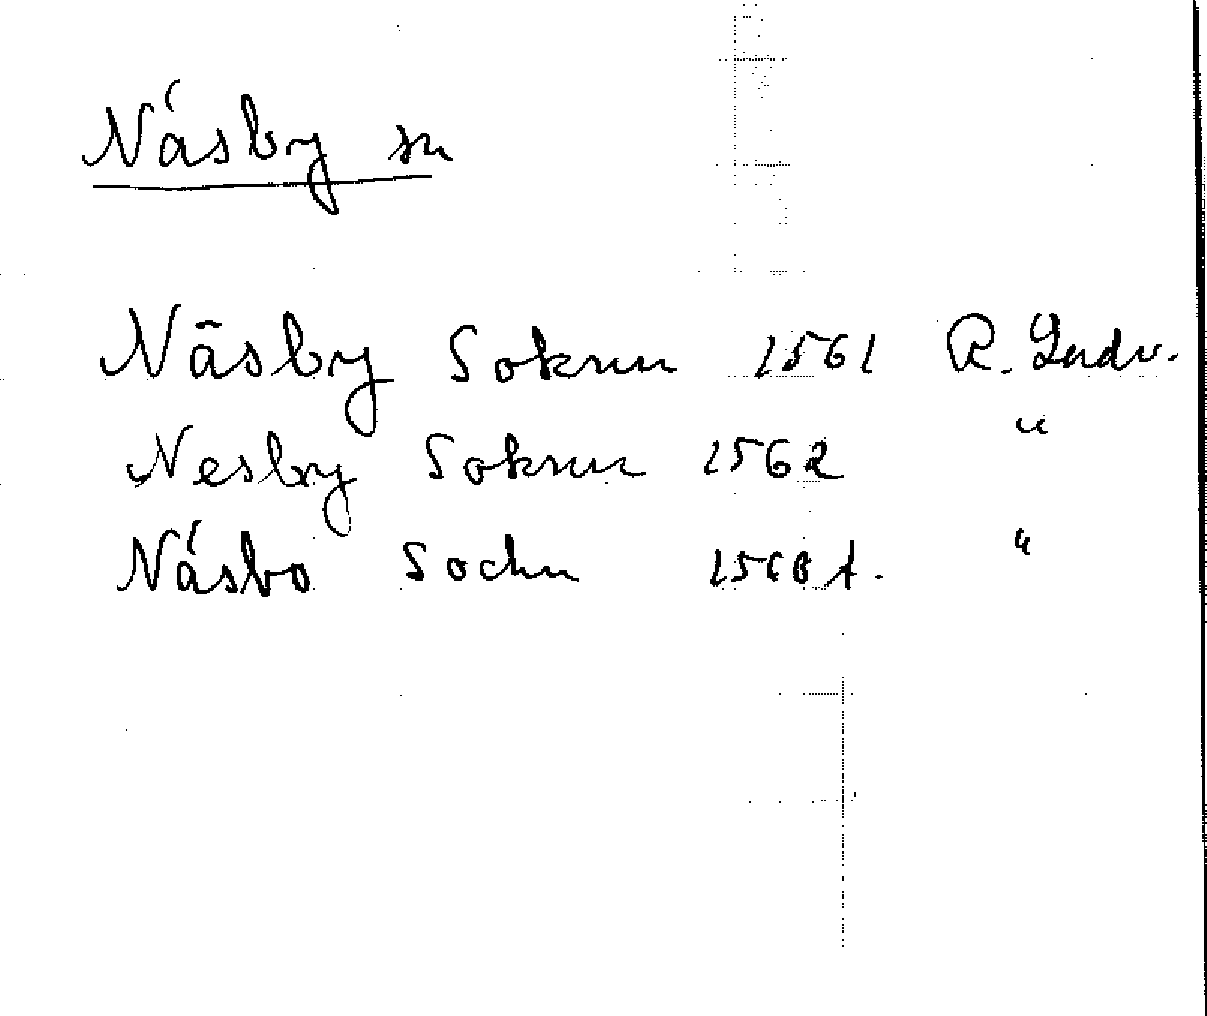 Näsby sn
Näsby Soknn 1561 R. Ludv.
Nesby Soknn 1562 "
Näsbo Sochn 1568 "